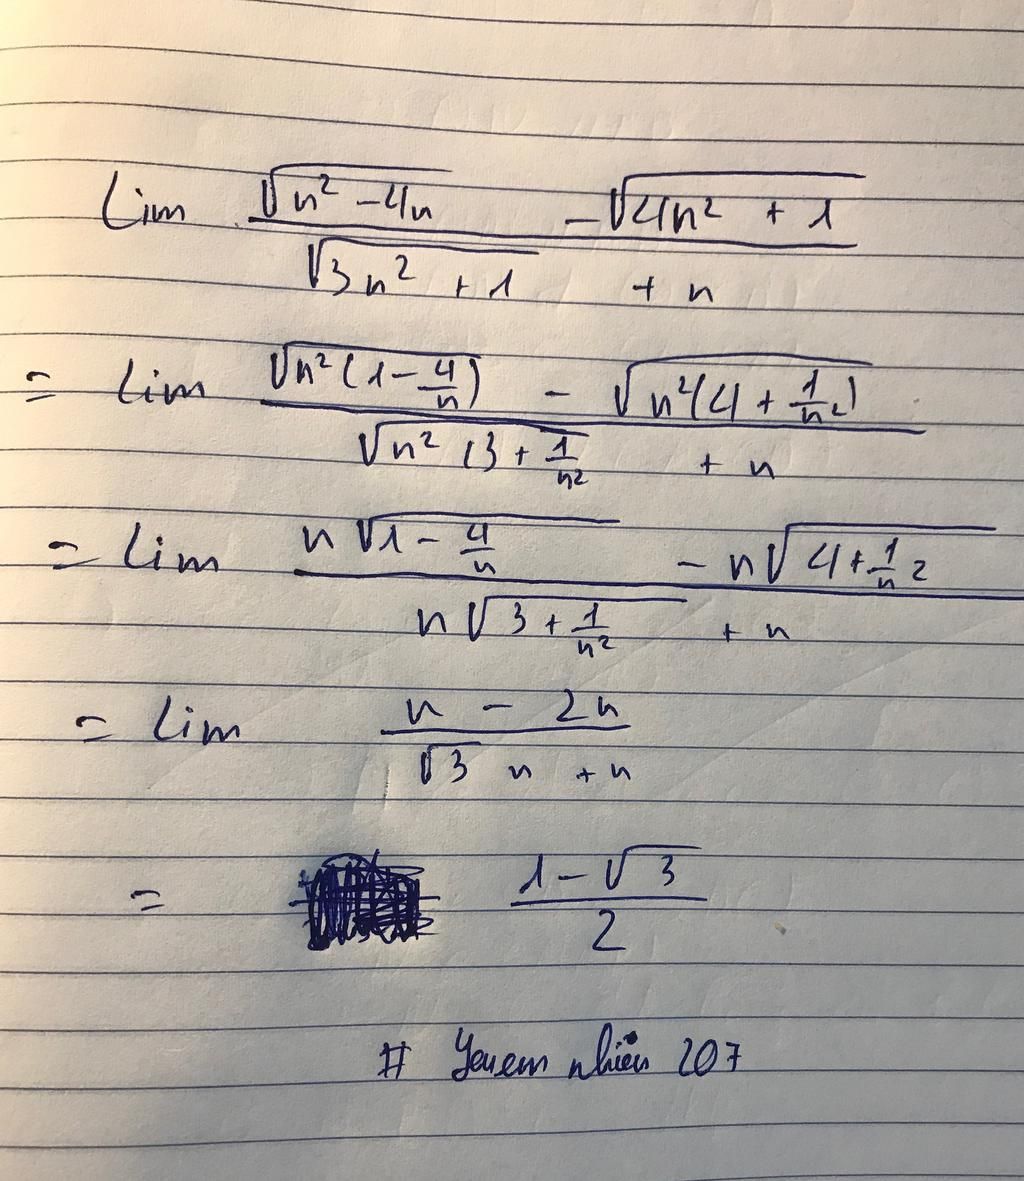 Lim (√(n² - 4n) - √(4n² + 1)) / (√(3n² + 1) + n)
= lim (√(n²(1 - 4/n)) - √(n²(4 + 1/n²))) / (√(n²(3 + 1/n²) + n)
= lim (n√(1 - 4/n) - n√(4 + 1/n²)) / (n√(3 + 1/n²) + n)
= lim (n - 2n) / (√3 n + n)
= (1 - √3) / 2
# Yeuem nhiều 207